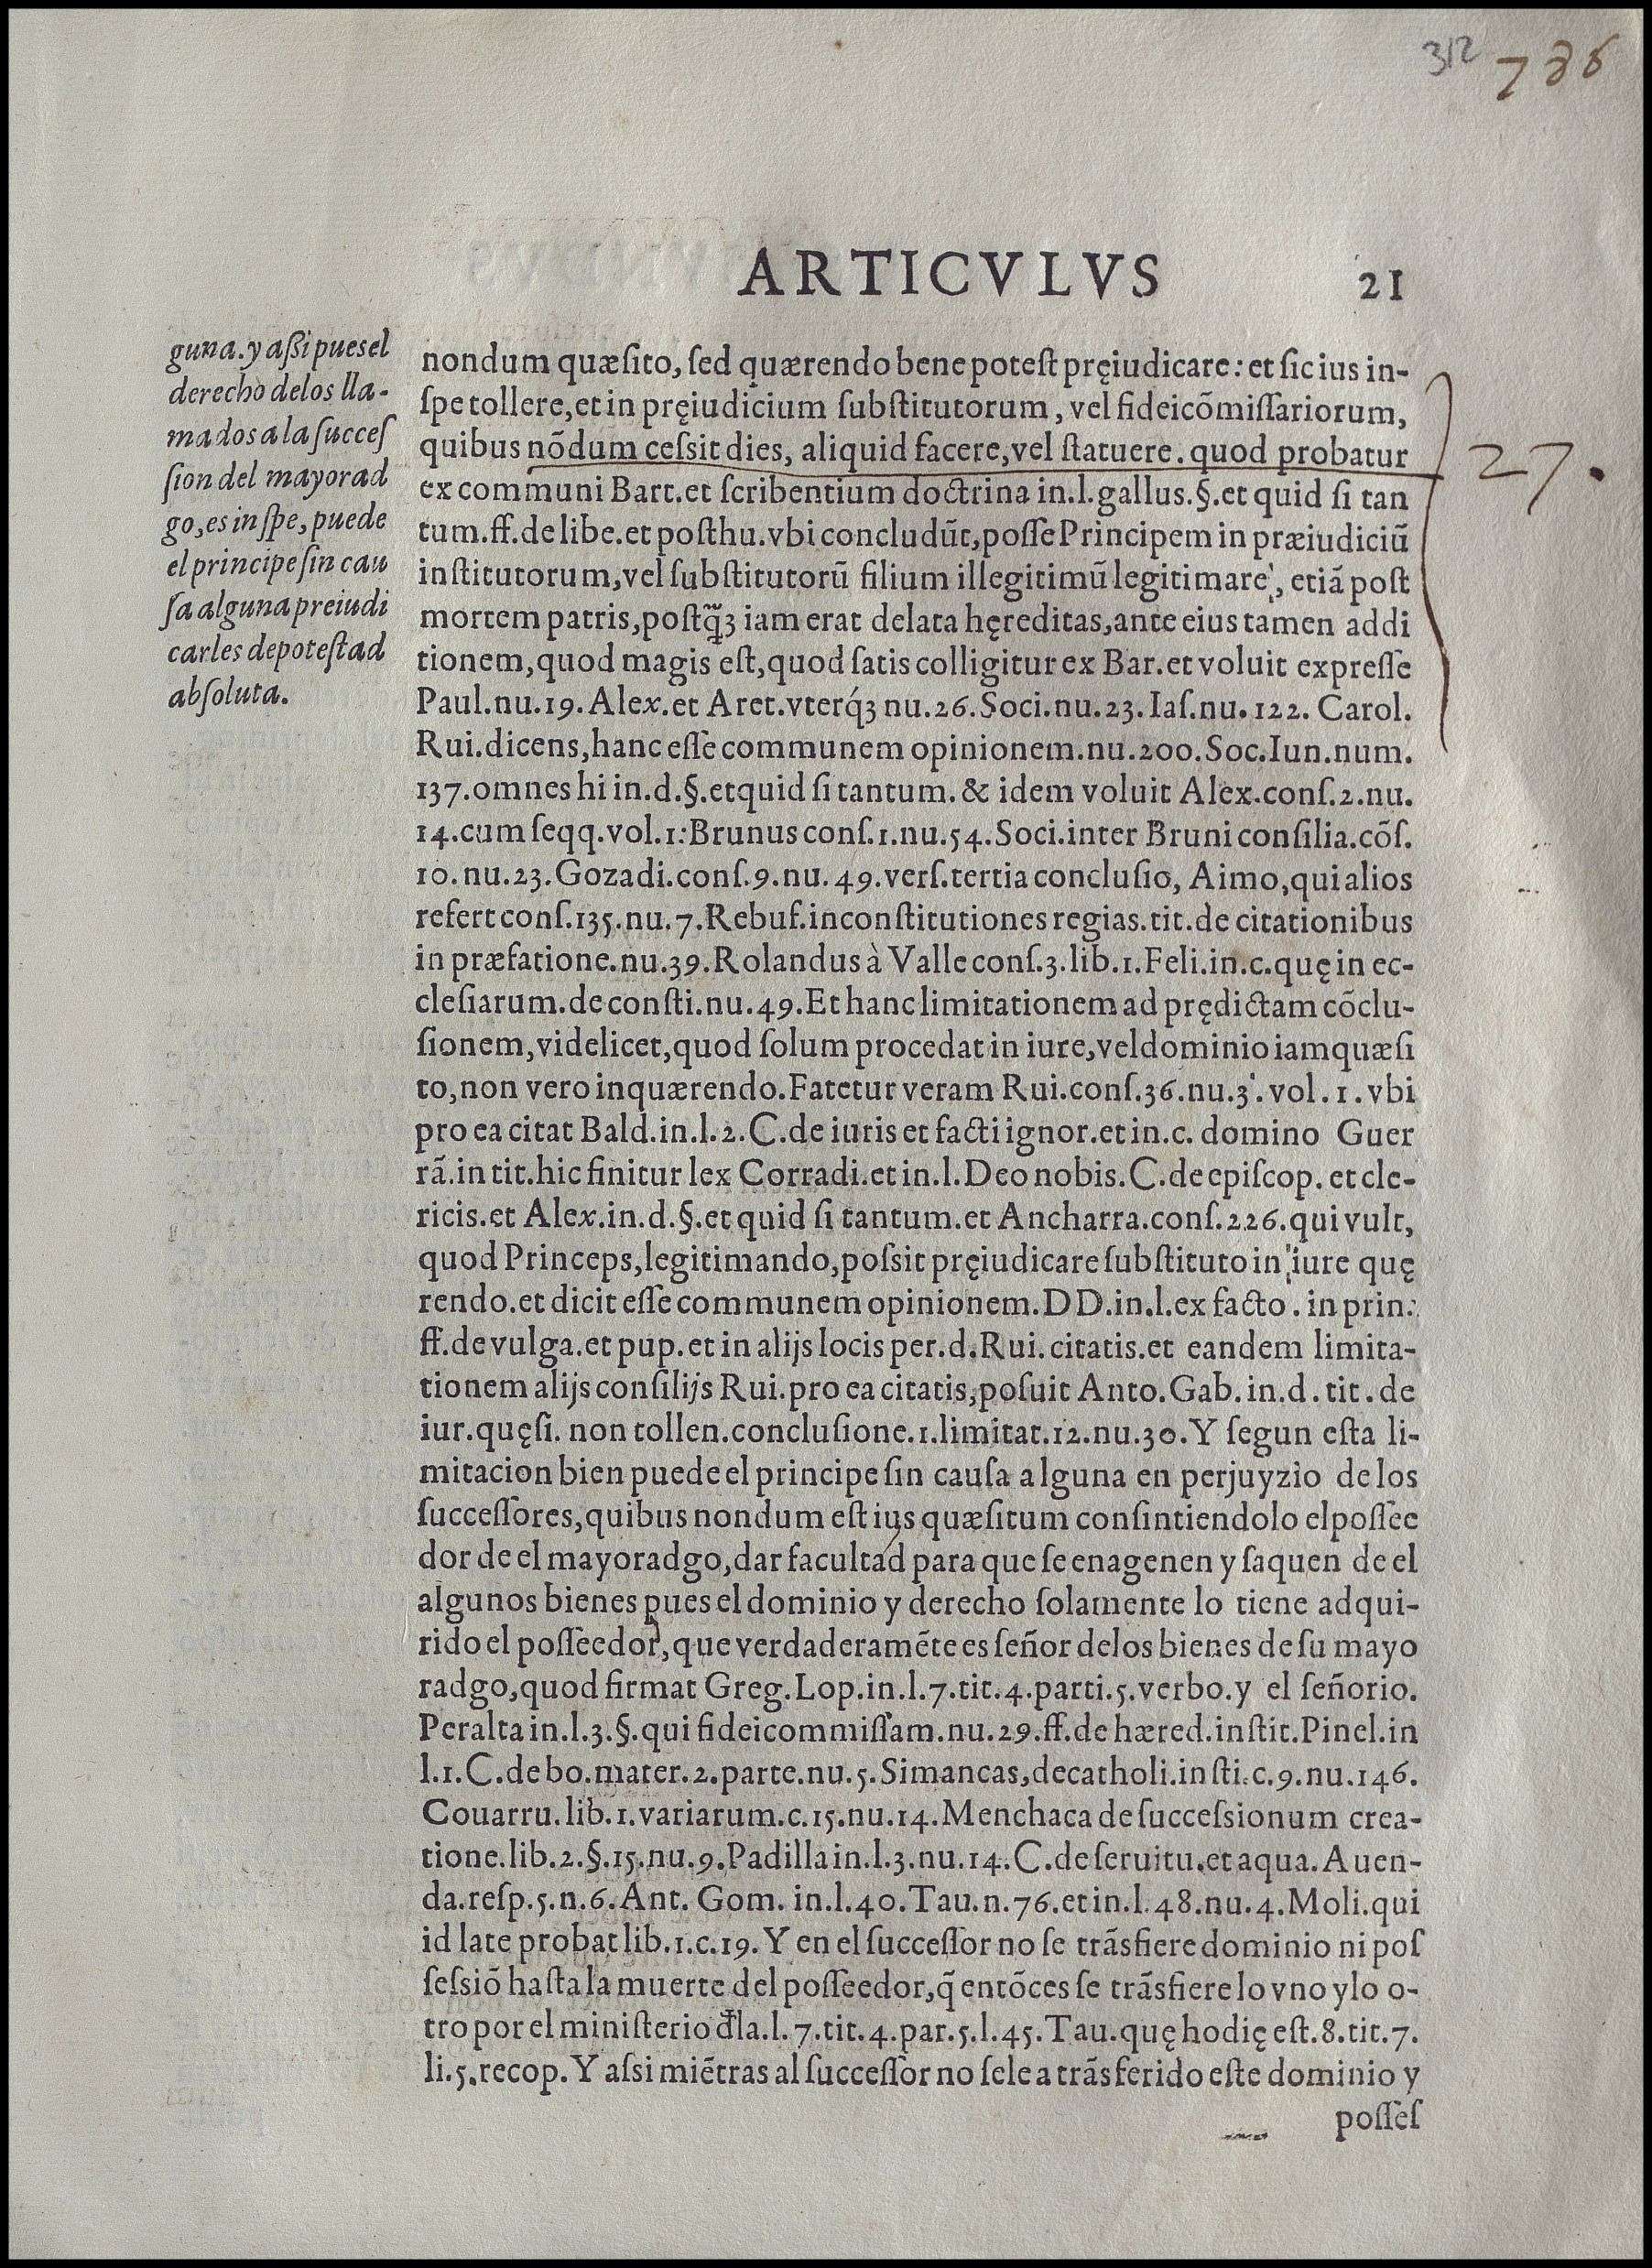 312 786
ARTICVLVS 21
guna. y aßi pues el
derecho de los lla-
mados a la succeſ
ſion del mayorad
go, es in ſpe, puede
el principe ſin cau
ſa alguna preiudi
carles de poteſtad
abſoluta.
nondum quæſito, ſed quærendo bene poteſt pręiudicare: et ſic ius in-
ſpe tollere, et in pręiudicium ſubſtitutorum, vel fideicõmiſſariorum,
quibus nõdum ceſsit dies, aliquid facere, vel ſtatuere. quod probatur
27.
ex communi Bart. et ſcribentium doctrina in.l.gallus.§.et quid ſi tan
tum.ff.de libe.et poſthu.vbi concludũt, poſſe Principem in præiudiciũ
inſtitutorum, vel ſubſtitutorũ filium illegitimũ legitimare, etiã poſt
mortem patris, poſtq̃ȝ iam erat delata hęreditas, ante eius tamen addi
tionem, quod magis eſt, quod ſatis colligitur ex Bar. et voluit expreſſe
Paul.nu.19. Alex. et Aret. vterq́ȝ nu.26. Soci.nu.23. Iaſ.nu.122. Carol.
Rui. dicens, hanc eſſe communem opinionem.nu.200. Soc. Iun. num.
137. omnes hi in.d.§.etquid ſi tantum. & idem voluit Alex. conſ.2.nu.
14. cum ſeqq. vol.1: Brunus conſ.1.nu.54. Soci. inter Bruni conſilia. cõſ.
10.nu.23. Gozadi. conſ.9.nu.49. verſ. tertia concluſio, Aimo, qui alios
refert conſ.135.nu.7. Rebuf. in conſtitutiones regias. tit. de citationibus
in præfatione.nu.39. Rolandus à Valle conſ.3.lib.1. Feli.in.c. quę in ec-
cleſiarum. de conſti.nu.49. Et hanc limitationem ad prędictam cõclu-
ſionem, videlicet, quod ſolum procedat in iure, vel dominio iam quæſi
to, non vero in quærendo. Fatetur veram Rui. conſ.36.nu.3. vol.1. vbi
pro ea citat Bald.in.l.2.C. de iuris et facti ignor. et in.c. domino Guer
rã. in tit. hic finitur lex Corradi. et in.l. Deo nobis. C. de epiſcop. et cle-
ricis. et Alex.in.d.§.et quid ſi tantum. et Ancharra. conſ.226. qui vult,
quod Princeps, legitimando, poſsit pręiudicare ſubſtituto in iure quę
rendo. et dicit eſſe communem opinionem. DD.in.l.ex facto. in prin.
ff. de vulga. et pup. et in alijs locis per.d. Rui. citatis. et eandem limita-
tionem alijs conſilijs Rui. pro ea citatis, poſuit Anto. Gab. in.d. tit. de
iur. quęſi. non tollen. concluſione.1. limitat.12.nu.30. Y ſegun eſta li-
mitacion bien puede el principe ſin cauſa alguna en perjuyzio de los
ſucceſſores, quibus nondum eſt ius quæſitum conſintiendolo el poſſee
dor de el mayoradgo, dar facultad para que ſe enagenen y ſaquen de el
algunos bienes pues el dominio y derecho ſolamente lo tiene adqui-
rido el poſſeedor, que verdaderamẽte es ſeñor de los bienes de ſu mayo
radgo, quod firmat Greg. Lop. in.l.7.tit.4.parti.5. verbo. y el ſeñorio.
Peralta in.l.3.§. qui fideicommiſſam.nu.29.ff. de hæred. inſtit. Pinel. in
l.1.C. de bo. mater.2. parte.nu.5. Simancas, de catholi. inſti.c.9.nu.146.
Couarru. lib.1. variarum.c.15.nu.14. Menchaca de ſucceſsionum crea-
tione. lib.2.§.15.nu.9. Padilla in.l.3.nu.14.C. de ſeruitu. et aqua. Auen-
da. reſp.5.n.6. Ant. Gom. in.l.40. Tau.n.76. et in.l.48.nu.4. Moli. qui
id late probat lib.1.c.19. Y en el ſucceſſor no ſe trãsfiere dominio ni poſ
ſeſsiõ haſta la muerte del poſſeedor, q̃ entõces ſe trãsfiere lo vno y lo o-
tro por el miniſterio đla.l.7.tit.4.par.5.l.45. Tau. quę hodię eſt.8.tit.7.
li.5. recop. Y aſsi miẽtras al ſucceſſor no ſele a trãsferido eſte dominio y
poſſeſ